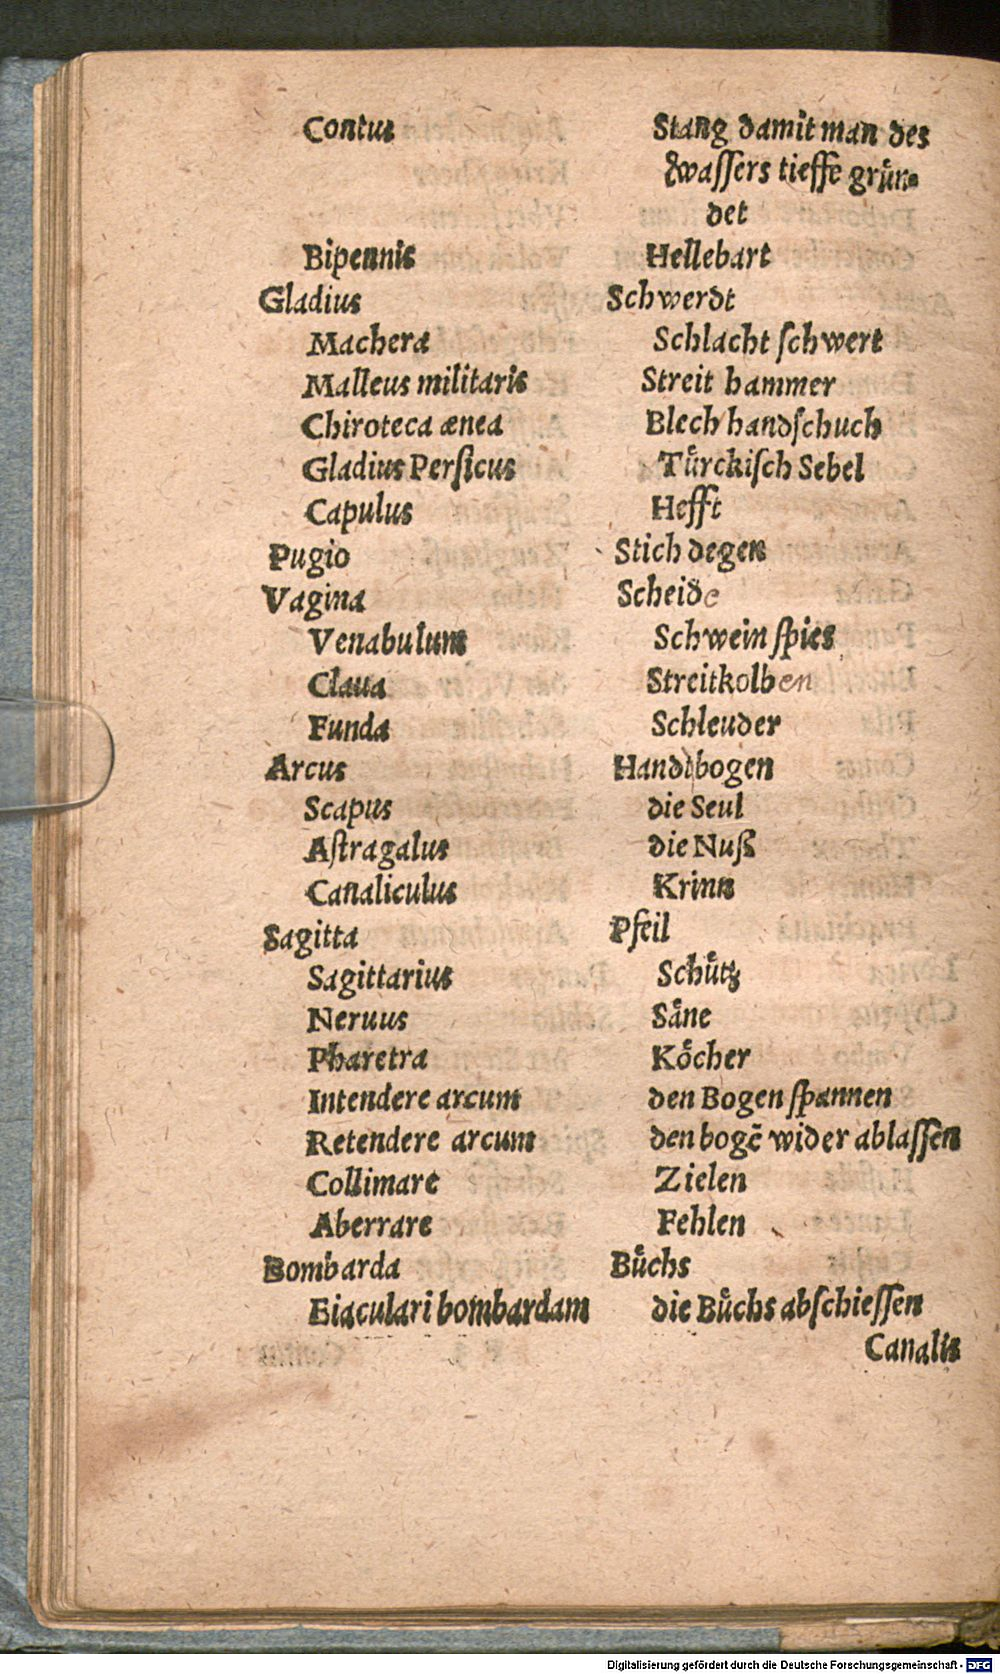 Contus Stang damit man des
wassers tieffe grün-
det
Bipennis Hellebart
Gladius Schwerdt
Machera Schlacht ſchwert
Malleus militaris Streit hammer
Chiroteca ænea Blech handſchuch
Gladius Perſicus Tuͤrckiſch Sebel
Capulus Hefft
Pugio Stich degen
Vagina Scheide
Venabulum Schwein ſpies
Claua Streitkolben
Funda Schleuder
Arcus Handtbogen
Scapus die Seul
Aſtragalus die Nuß
Canaliculus Krinn
Sagitta Pfeil
Sagittarius Schuͤtz
Neruus Saͤne
Pharetra Koͤcher
Intendere arcum den Bogen ſpannen
Retendere arcum den bogē wider ablaſſen
Collimare Zielen
Aberrare Fehlen
Bombarda Buͤchs
Eiaculari bombardam die Buͤchs abſchieſſen
Canalis
Digitalisierung gefördert durch die Deutsche Forschungsgemeinschaft - DFG